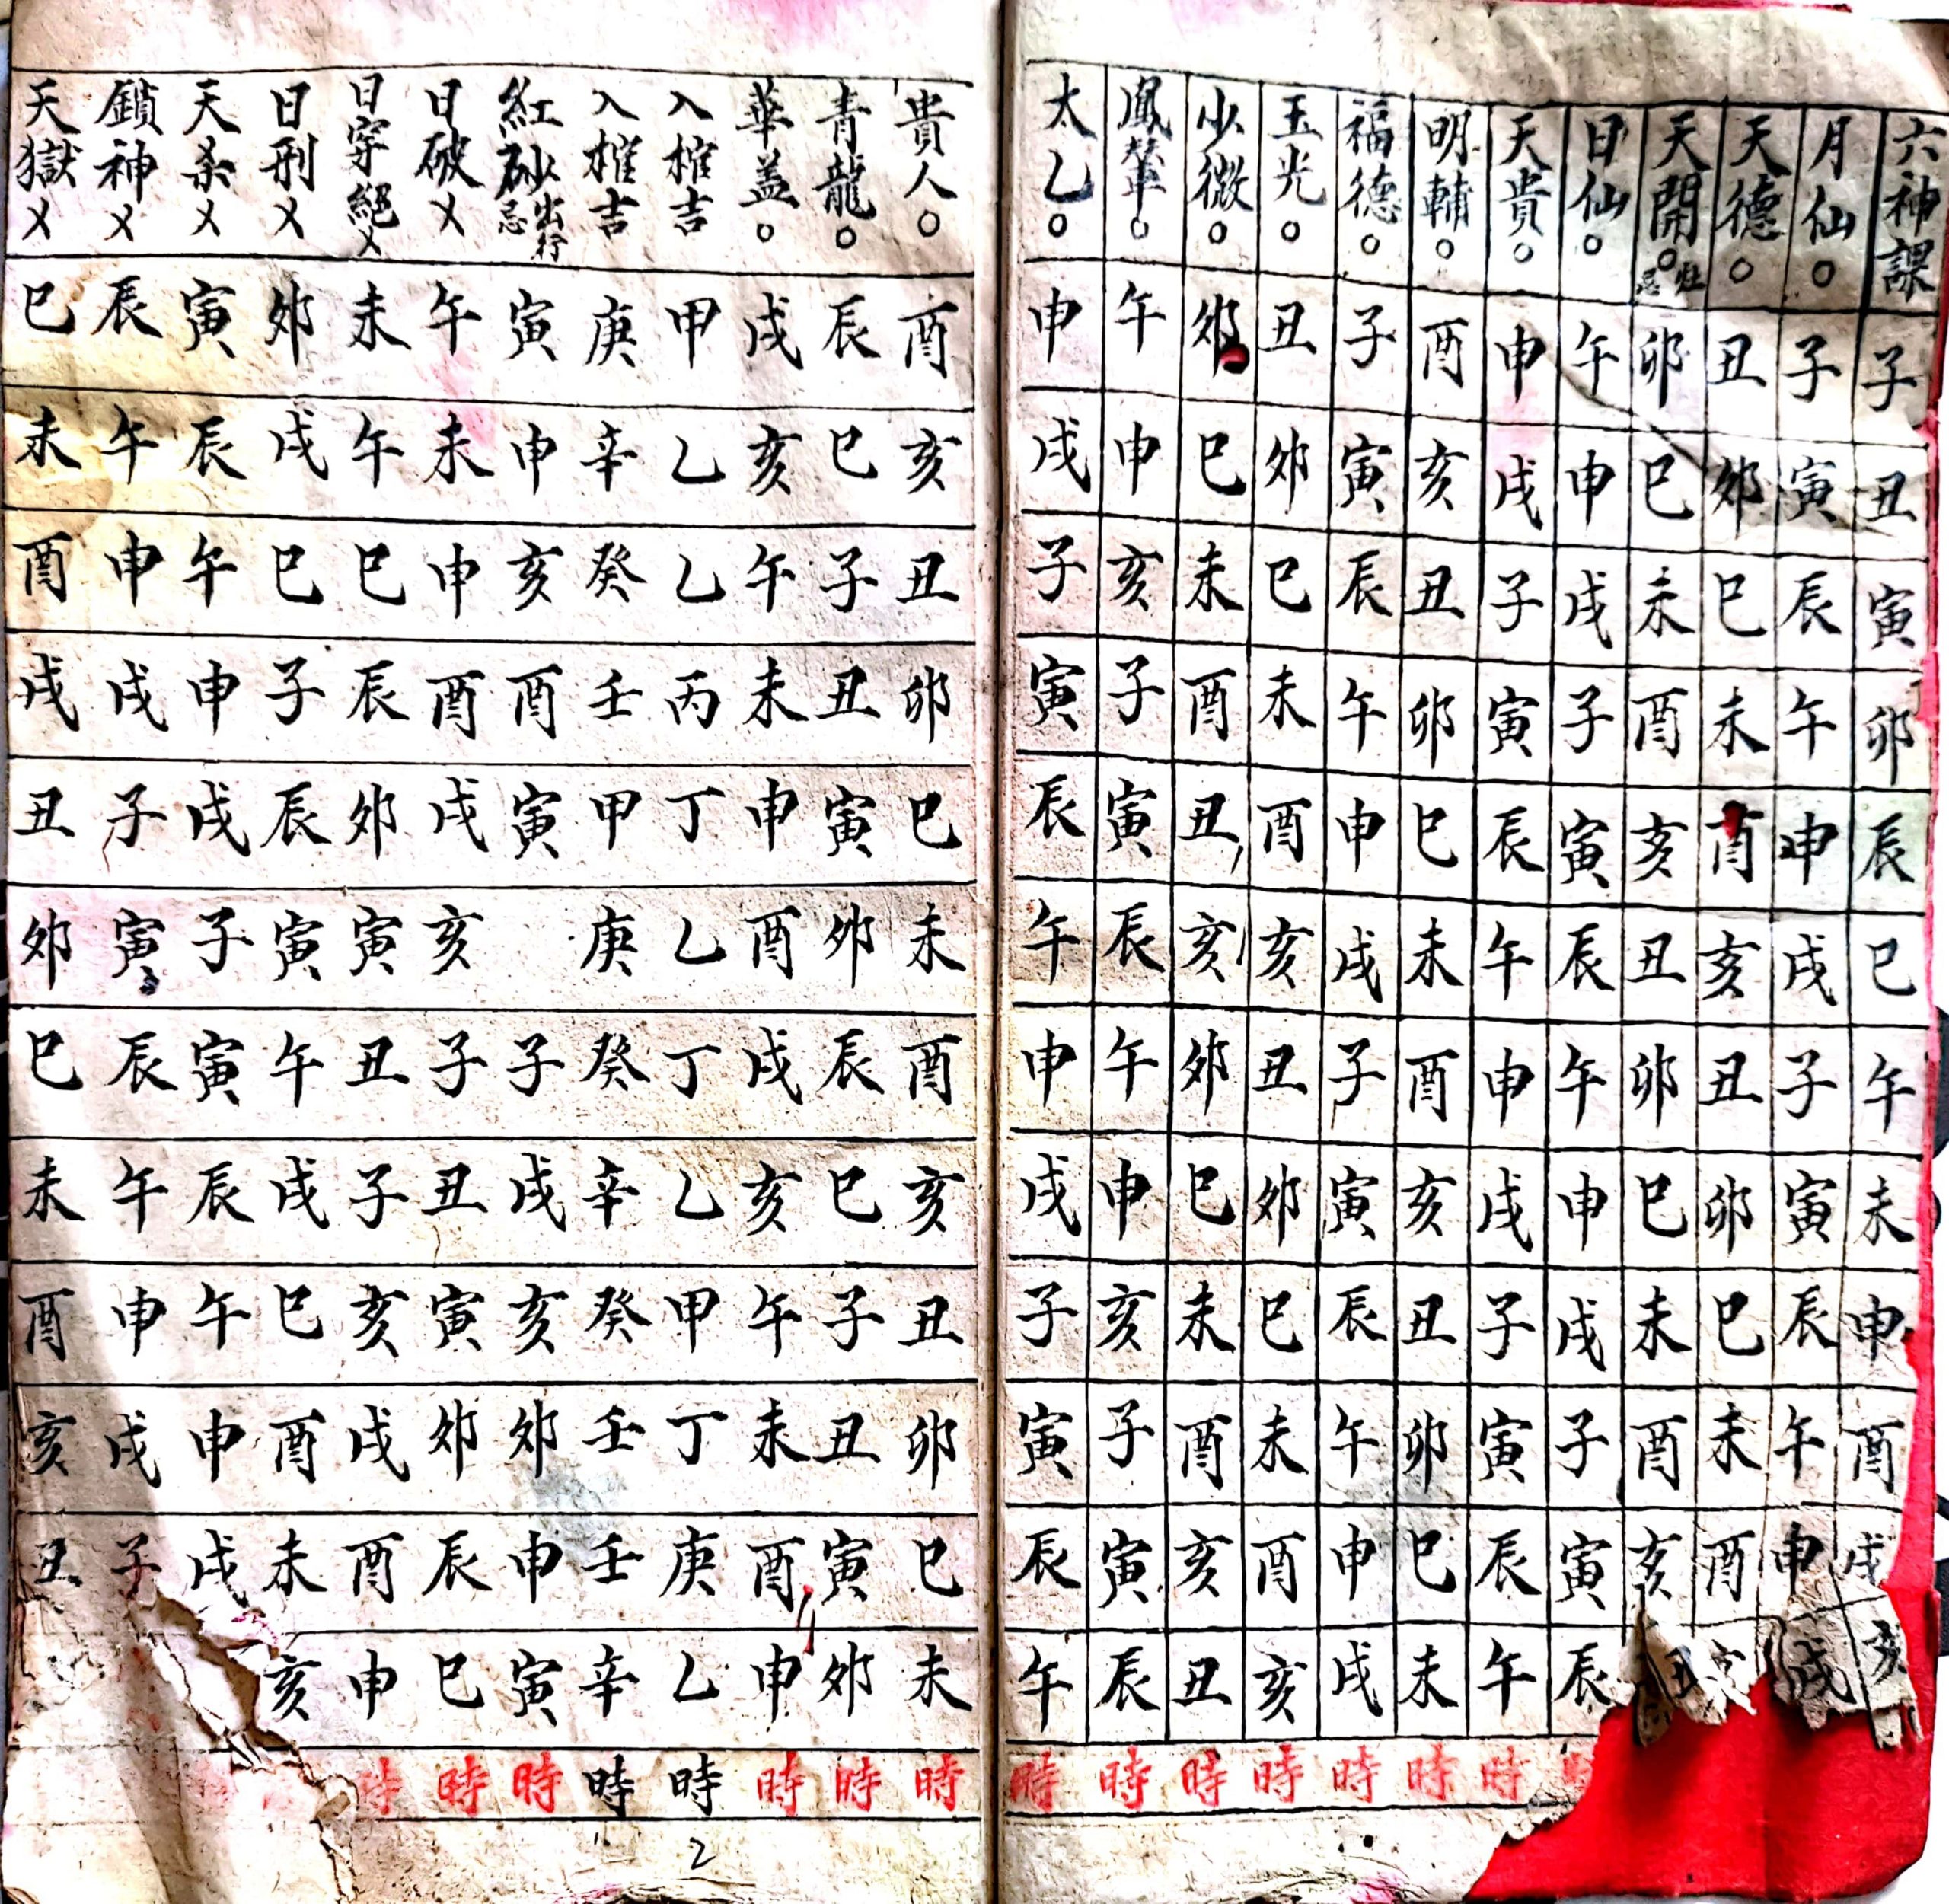 六神課 子 丑 寅 卯 辰 巳 午 未 申 酉 戌 亥
月仙○ 子 寅 辰 午 申 戌 子 寅 辰 午 申 戌
天德○ 丑 卯 巳 未 酉 亥 丑 卯 巳 未 酉
天開○忌灶 卯 巳 未 酉 亥 丑 卯 巳 未 酉 亥 丑
日仙○ 午 申 戌 子 寅 辰 午 申 戌 子 寅 辰
天貴○ 申 戌 子 寅 辰 午 申 戌 子 寅 辰 午 時
明輔○ 酉 亥 丑 卯 巳 未 酉 亥 丑 卯 巳 未 時
福德○ 子 寅 辰 午 申 戌 子 寅 辰 午 申 戌 時
玉光○ 丑 卯 巳 未 酉 亥 丑 卯 巳 未 酉 亥 時
少微○ 卯 巳 未 酉 丑 亥 卯 巳 未 酉 亥 丑 時
鳳輦○ 午 申 亥 子 寅 辰 午 申 亥 子 寅 辰 時
太乙○ 申 戌 子 寅 辰 午 申 戌 子 寅 辰 午 時
貴人○ 酉 亥 丑 卯 巳 未 酉 亥 丑 卯 巳 未 時
青龍○ 辰 巳 子 丑 寅 卯 辰 巳 子 丑 寅 卯 時
華蓋○ 戌 亥 午 未 申 酉 戌 亥 午 未 酉 申 時
入榷吉 甲 乙 乙 丙 丁 乙 丁 乙 甲 丁 庚 乙 時
入榷吉 庚 辛 癸 壬 甲 庚 癸 辛 癸 壬 壬 辛 時
紅砂忌出行 寅 申 亥 酉 寅 子 戌 亥 卯 申 寅 時
日破乂 午 未 申 酉 戌 亥 子 丑 寅 卯 辰 巳 時
日穿絕乂 未 午 巳 辰 卯 寅 丑 子 亥 戌 酉 申 時
日刑乂 卯 戌 巳 子 辰 寅 午 戌 巳 酉 未 亥
天杀乂 寅 辰 午 申 戌 子 寅 辰 午 申 戌
鎖神乂 辰 午 申 戌 子 寅 辰 午 申 戌 子
天獄乂 巳 未 酉 戌 丑 卯 巳 未 酉 亥 丑
2